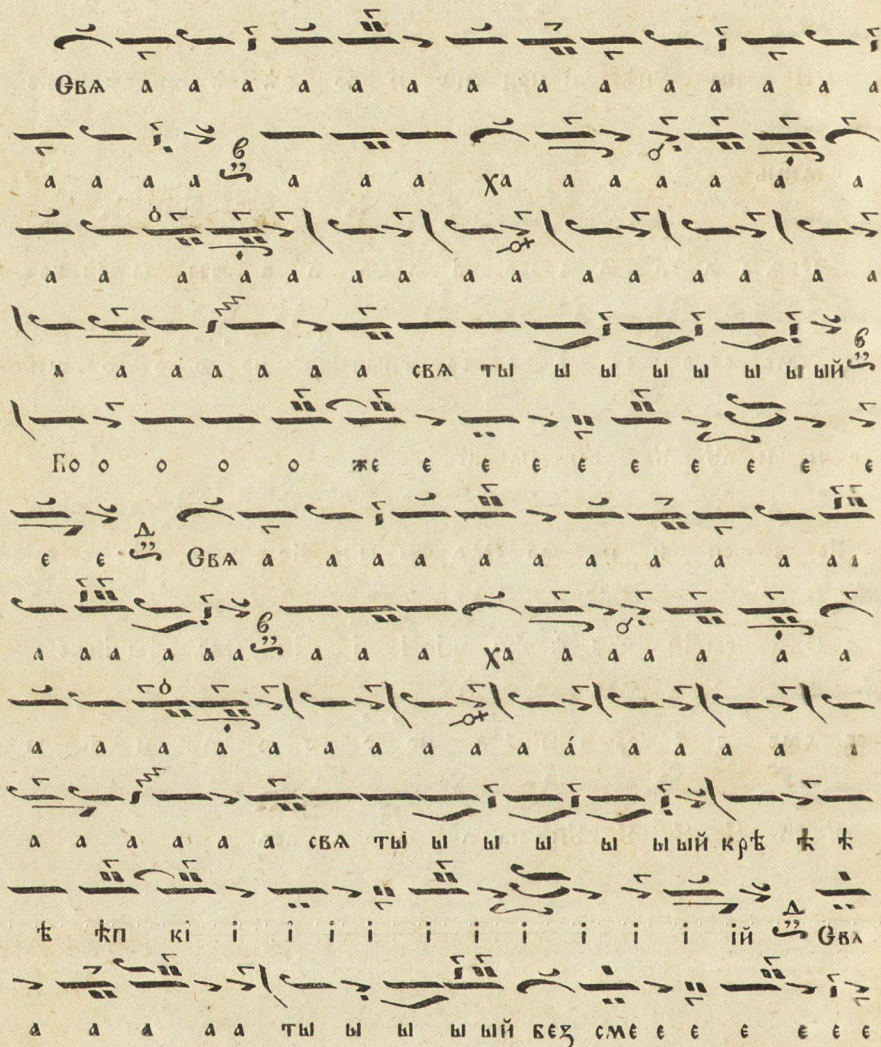 Свѧ а а а а а а а а а а а а а а
а а а а в а а а ха а а а а а а
а а а а а а а а а а а а а а
ѧ а а а а а а свѧ ты ы ы ы ы ы ы ый в
Бо о о о о же е е е е е е е е е
е е Д Свѧ а а а а а а а а а а а
а а а а а а в а а а ха а а а а а а
а а а а а а а а а а а́ а а а а а
а а а а а а свѧ ты ы ы ы ы ы ый крѣ ѣ ѣ
ѣ ѣп кі і і і і і і і і і і ій Д Свѧ
а а а а а ты ы ы ы ый без сме е е е е е е